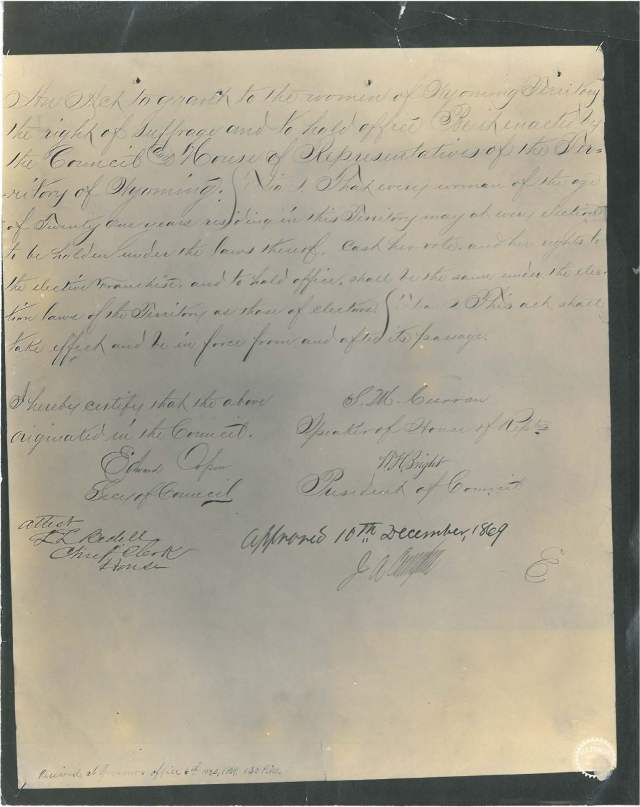 An Act to grant to the women of Wyoming Territory
the right of Suffrage and to hold office Be it enacted by
the Council and House of Representatives of the Ter-
ritory of Wyoming. Sec 1 That every woman of the age
of Twenty one years residing in this Territory may at every election
to be holden under the laws thereof. Cast her vote. and her rights to
the elective franchise. and to hold office. shall be the same under the elec-
tion laws of the Territory as those of electors. Sec 2 This act shall
take effect and be in force from and after its passage.
I hereby certify that the above
originated in the Council.
Edward Orpen
Secy of Council
S. M. Curran
Speaker of House of Reps
W H Bright
President of Council
Attest
L L Bedell
Chief Clerk
House
Approved 10th December, 1869
J A Campbell
E
Received at Governors office 6th 1869